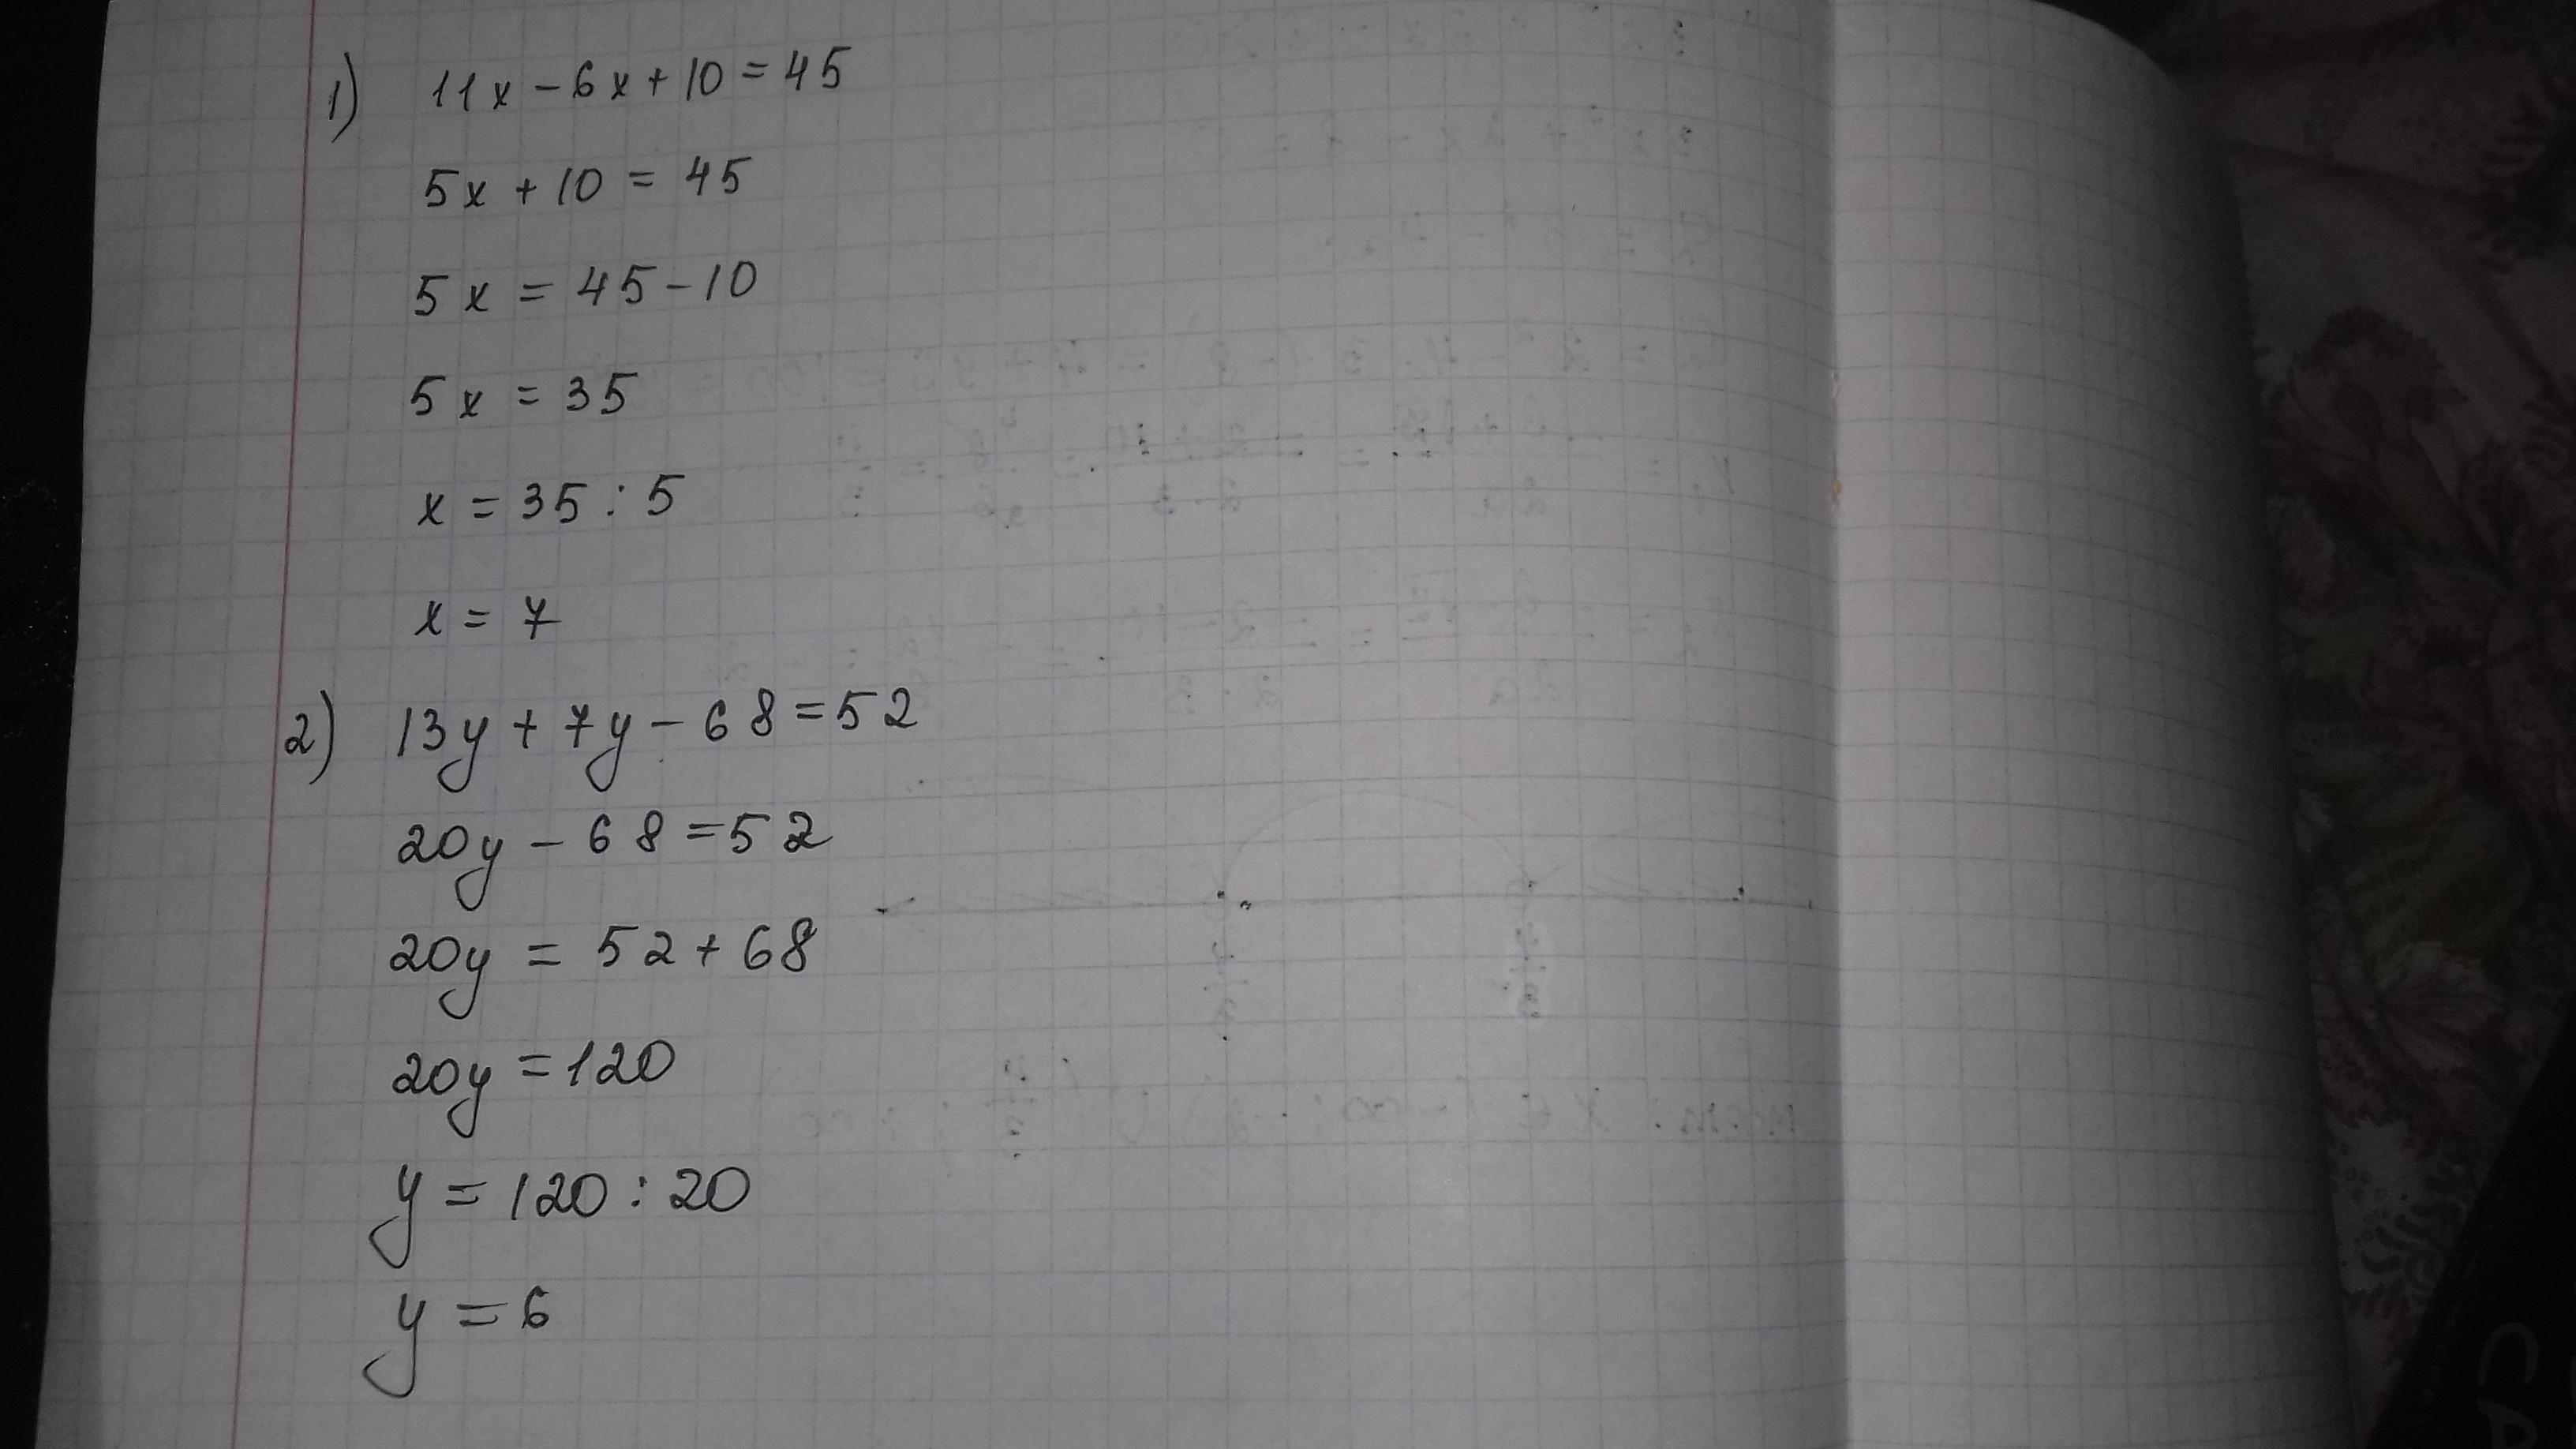 1) 11x - 6x + 10 = 45
5x + 10 = 45
5x = 45 - 10
5x = 35
x = 35 : 5
x = 7
2) 13y + 7y - 68 = 52
20y - 68 = 52
20y = 52 + 68
20y = 120
y = 120 : 20
y = 6